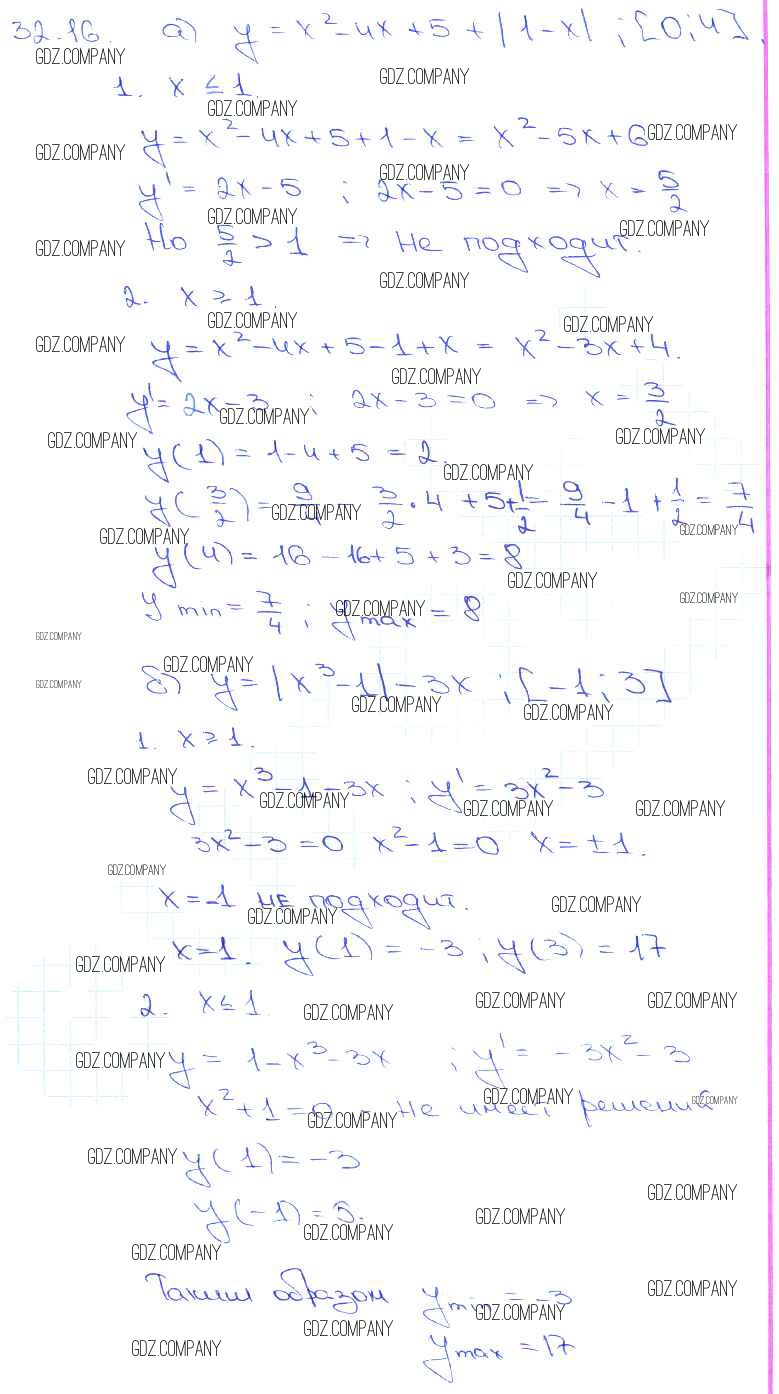 32.16. а) y = x² - 4x + 5 + |1 - x| ; [0; 4].
1. x ≤ 1.
y = x² - 4x + 5 + 1 - x = x² - 5x + 6
y' = 2x - 5 ; 2x - 5 = 0 => x = 5/2
Но 5/2 > 1 => не подходит.
2. x ≥ 1.
y = x² - 4x + 5 - 1 + x = x² - 3x + 4.
y' = 2x - 3 ; 2x - 3 = 0 => x = 3/2
y(1) = 1 - 4 + 5 = 2.
y(3/2) = 9/4 - 3/2 · 4 + 5 + 1/2 = 9/4 - 1 + 1/2 = 7/4
y(4) = 16 - 16 + 5 + 3 = 8
y min = 7/4 ; y max = 8
б) y = |x³ - 1| - 3x ; [-1; 3]
1. x ≥ 1.
y = x³ - 1 - 3x ; y' = 3x² - 3
3x² - 3 = 0 x² - 1 = 0 x = ±1.
x = -1 не подходит.
x = 1. y(1) = -3 ; y(3) = 17
2. x ≤ 1.
y = 1 - x³ - 3x ; y' = -3x² - 3
x² + 1 = 0 - не имеет решений
y(1) = -3
y(-1) = 5.
Таким образом y min = -3
y max = 17
GDZ.COMPANY